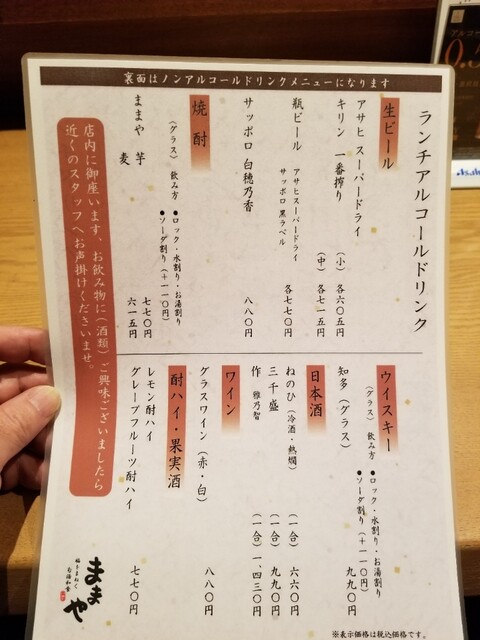 裏面はノンアルコールドリンクメニューになります
ランチアルコールドリンク
生ビール
アサヒ スーパードライ
キリン 一番搾り
(小) 各六〇五円
(中) 各七一五円
瓶ビール アサヒスーパードライ
サッポロ黒ラベル
各七七〇円
サッポロ 白穂乃香 八八〇円
焼酎
〈グラス〉 飲み方
●ロック・水割り・お湯割り
●ソーダ割り(+一一〇円)
ままや 芋 七七〇円
麦 六一五円
ウイスキー
〈グラス〉 飲み方
●ロック・水割り・お湯割り
●ソーダ割り(+一一〇円)
知多(グラス) 九九〇円
日本酒
ねのひ(冷酒・熱燗) (一合) 六六〇円
三千盛 (一合) 九九〇円
作 雅乃智 (一合) 一、四三〇円
ワイン
グラスワイン(赤・白) 八八〇円
酎ハイ・果実酒
レモン酎ハイ
グレープフルーツ酎ハイ
七七〇円
店内に御座います、お飲み物に(酒類)ご興味ございましたら
近くのスタッフへお声掛けくださいませ。
ままや
※表示価格は税込価格です。
Asahi